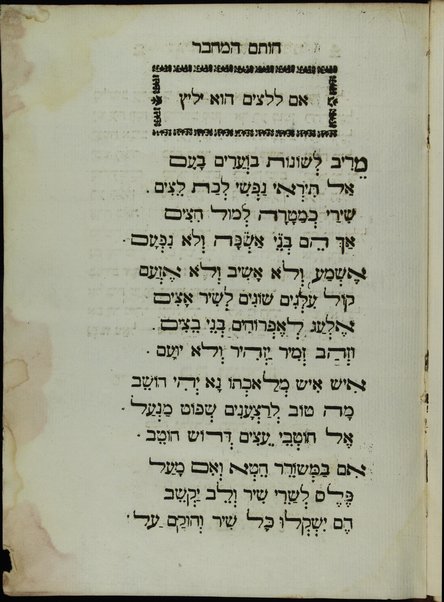 חותם המחבר
אם ללצים הוא יליץ
מֵרִיב לְשׁוֹנוֹת בּוֹעֲרִים בָּעָם
אַל תִּירְאִי נַפְשִׁי לְכַת לֵצִים.
שִׁירַי כְּמַטָּרָה לְמוּל חִצִּים
אַךְ הֵם בְּנֵי אַשְׁפָּה וְלֹא נִפְעָם.
אֶשְׁמַע וְלֹא אָשִׁיב וְלֹא אֶזְעַם
קוֹל עַלְגִים שׁוֹנִים לְשִׁיר אָצִים
אֶלְעַג לְאֶפְרוֹחִים בְּנֵי בֵצִים.
וּזְהַב זָמִיר יַזְהִיר וְלֹא יוּעַם.
אִישׁ אִישׁ מְלַאכְתּוֹ נָא יְהִי חוֹשֵׁב
מָה טוֹב לְרַצְעָנִים שְׁפוֹט מִנְעָל.
אֶל חוֹטְבֵי עֵצִים דְּרוֹשׁ חוֹטֵב.
אִם בַּמְשׁוֹרֵר חֵטְא וְאִם מָעַל
פֶּלֶס לְשָׂרֵי שִׁיר וְלֵב יַקְשֵׁב
הֵם יִשְׁקְלוּ כָּל שִׁיר וְהוּקַם עָל.